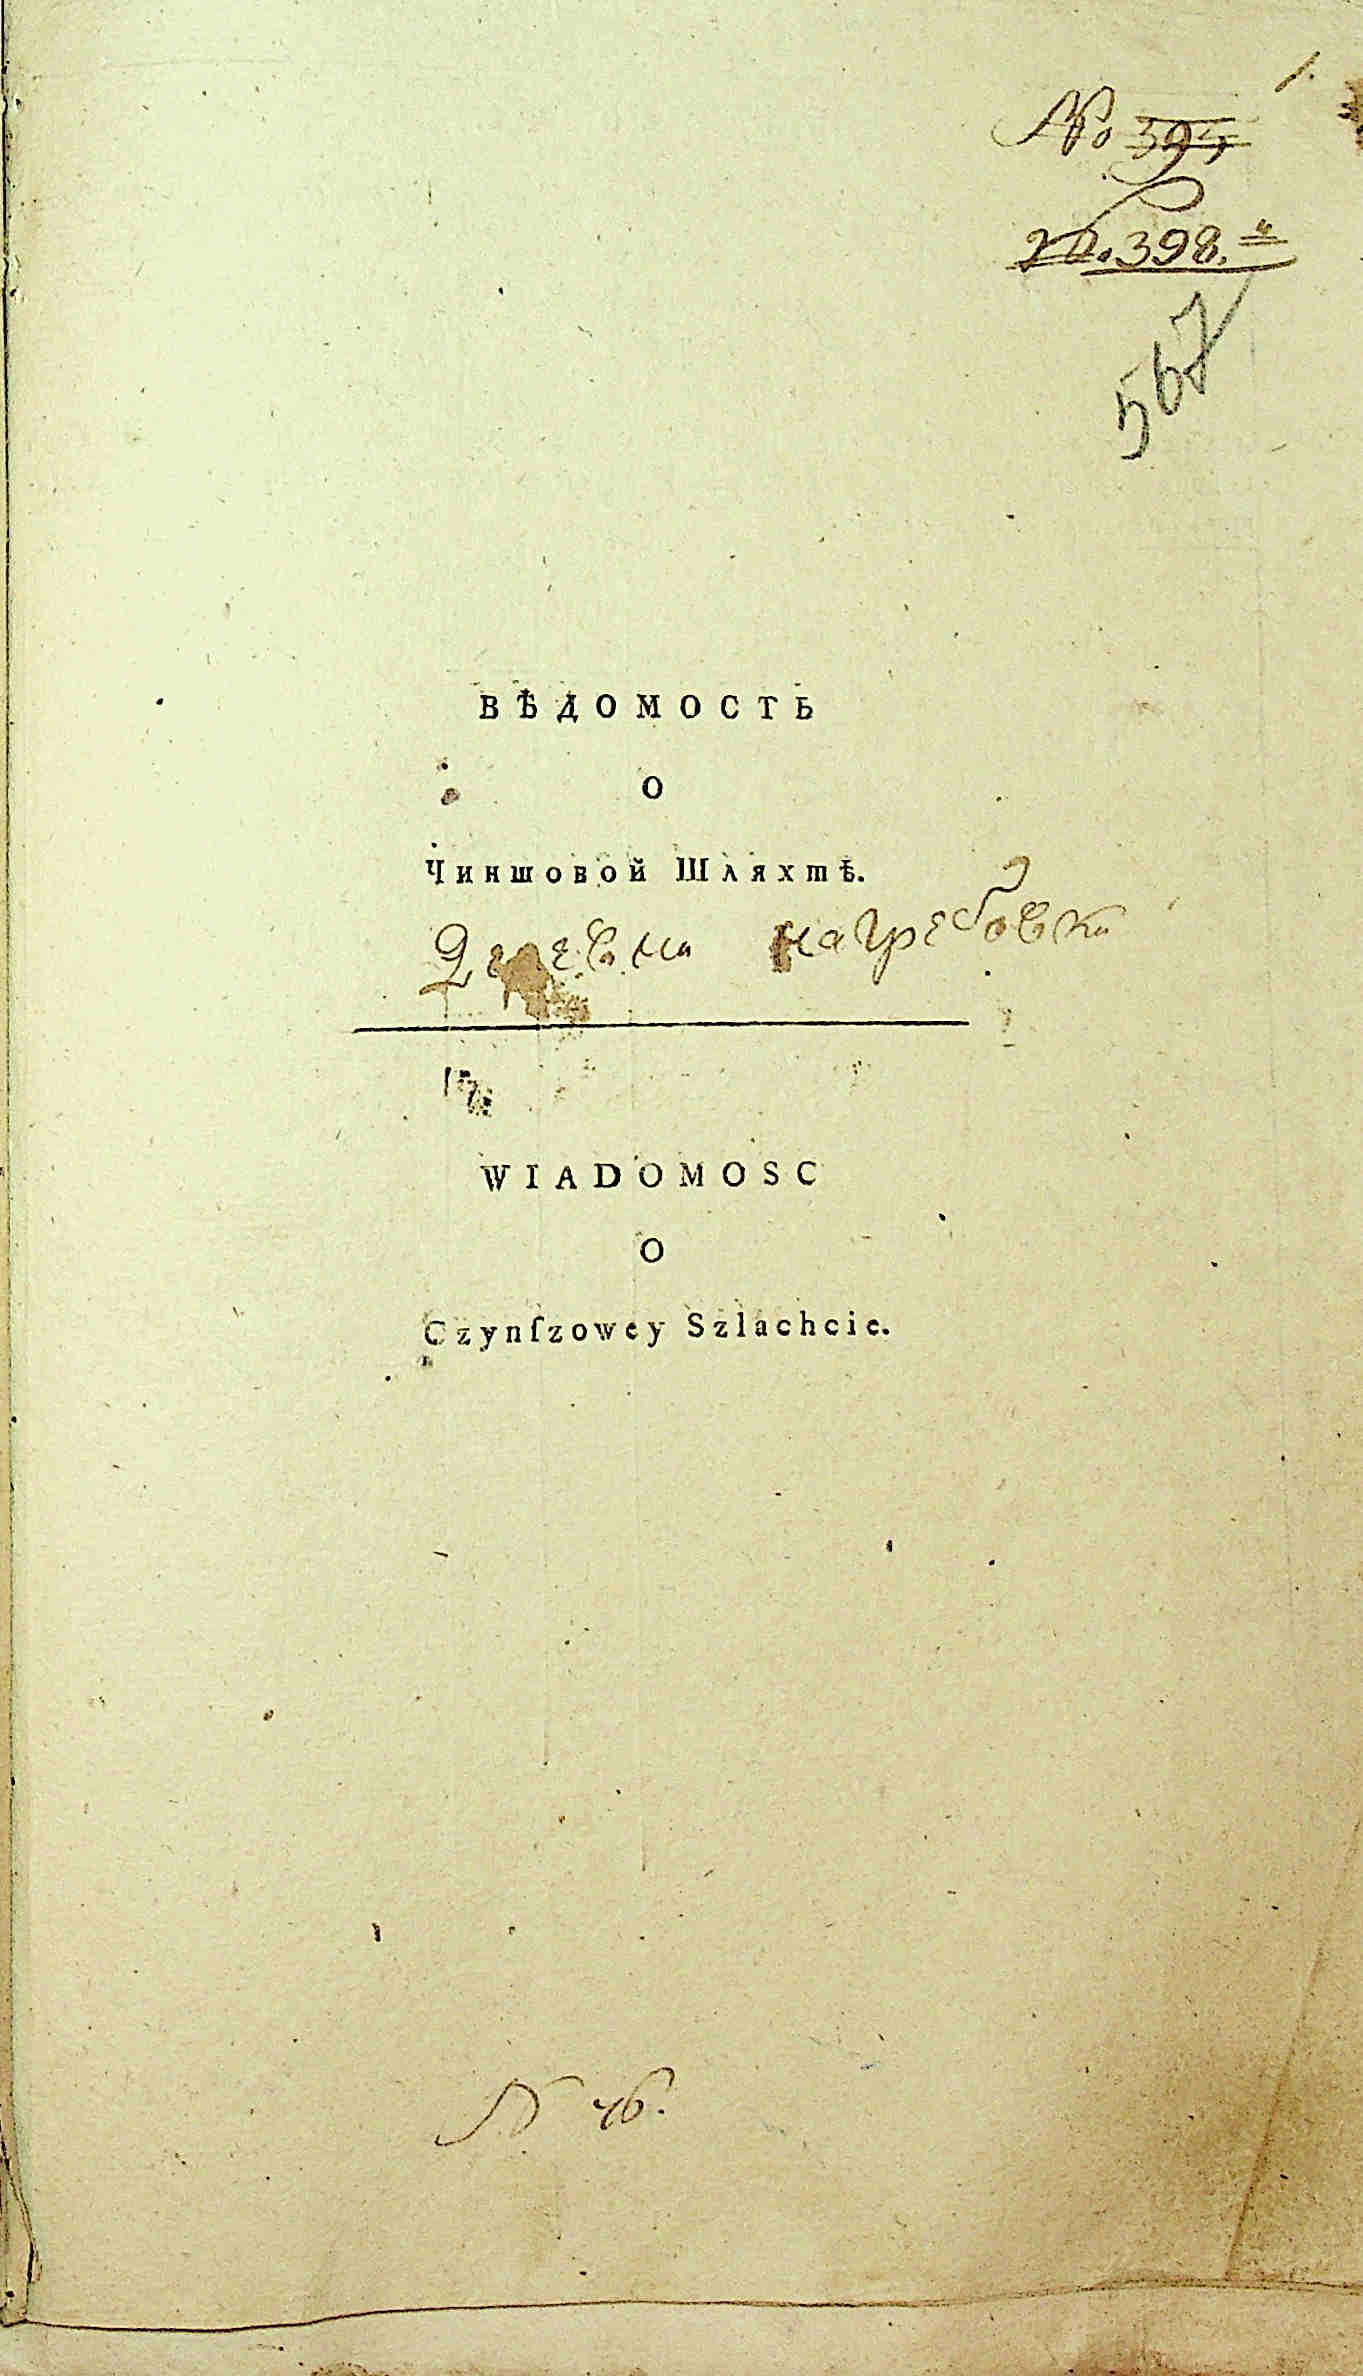 1.
№ 395
398.
567
ВѢДОМОСТЬ
О
Чиншовой Шляхтѣ.
Деревни нагребовки
WIADOMOSC
O
Czynſzowey Szlachcie.
N 46.